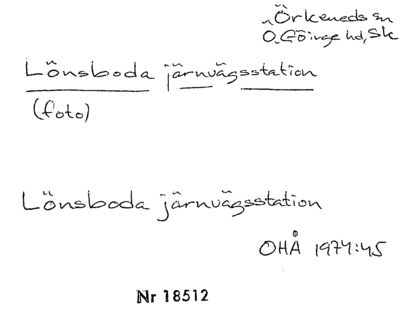 Örkeneds sn
Ö. Göinge hd, Sk
Lönsboda järnvägsstation
(foto)
Lönsboda järnvägsstation
OHÅ 1974:45
Nr 18512